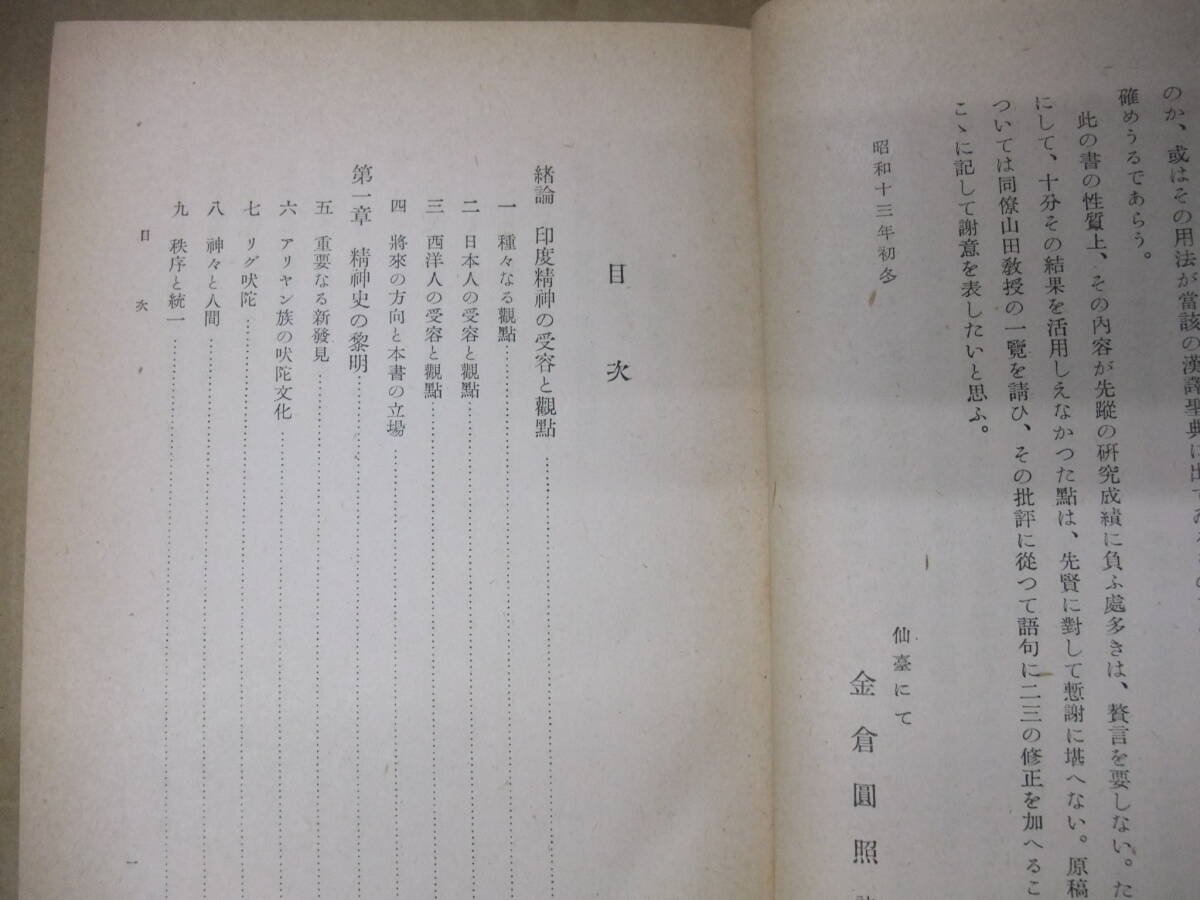 のか、或はその用法が當該の漢譯聖典に出て
確めうるであらう。
此の書の性質上、その內容が先蹤の硏究成績に負ふ處多きは、贅言を要しない。た
にして、十分その結果を活用しえなかつた點は、先賢に對して慙謝に堪へない。原稿
ついては同僚山田敎授の一覽を請ひ、その批評に從つて語句に二三の修正を加へるこ
こゝに記して謝意を表したいと思ふ。
昭和十三年初冬
仙臺にて
金倉圓照
目次
緖論 印度精神の受容と觀點
一 種々なる觀點
二 日本人の受容と觀點
三 西洋人の受容と觀點
四 將來の方向と本書の立場
第一章 精神史の黎明
五 重要なる新發見
六 アリヤン族の吠陀文化
七 リグ吠陀
八 神々と人間
九 秩序と統一
目次
一